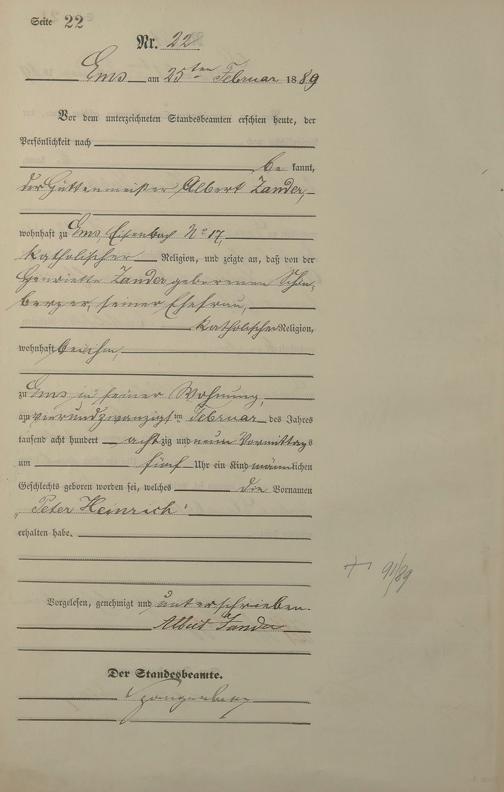 Seite 22
Nr. 22
Ems am 25ten Februar 1889
Vor dem unterzeichneten Standesbeamten erschien heute, der
Persönlichkeit nach
be kannt,
der Hüttenmeister Albert Zander,
wohnhaft zu Ems, Eisenbach No 17,
katholischer Religion, und zeigte an, daß von der
Henriette Zander geborenen Schön-
berger, seiner Ehefrau,
katholischer Religion,
wohnhaft bei ihm,
zu Ems in seiner Wohnung,
am vierundzwanzigsten Februar des Jahres
tausend acht hundert achtzig und neun Vormittags
um fünf Uhr ein Kind männlichen
Geschlechts geboren worden sei, welches die Vornamen
"Peter Heinrich"
erhalten habe.
+ 91/89
Vorgelesen, genehmigt und unterschrieben.
Albert Zander
Der Standesbeamte.